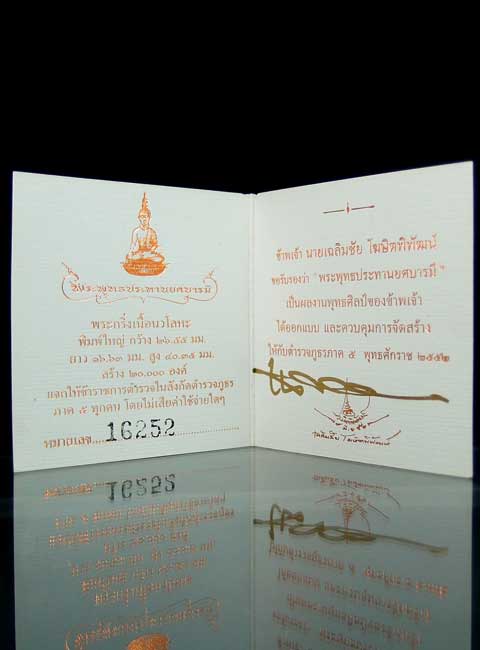 พระพุทธประทานยศบารมี
พระกริ่งเนื้อนวโลหะ
พิมพ์ใหญ่ กว้าง ๒๖.๕๕ มม.
ยาว ๑๖.๖๓ มม. สูง ๔๐.๓๕ มม.
สร้าง ๒๐,๐๐๐ องค์
แจกให้ข้าราชการตำรวจในสังกัดตำรวจภูธร
ภาค ๕ ทุกคน โดยไม่เสียค่าใช้จ่ายใดๆ
หมายเลข....16252
ข้าพเจ้า นายเฉลิมชัย โฆษิตพิพัฒน์
ขอรับรองว่า "พระพุทธประทานยศบารมี"
เป็นผลงานพุทธศิลป์ของข้าพเจ้า
ได้ออกแบบ และควบคุมการจัดสร้าง
ให้กับตำรวจภูธรภาค ๕ พุทธศักราช ๒๕๕๒